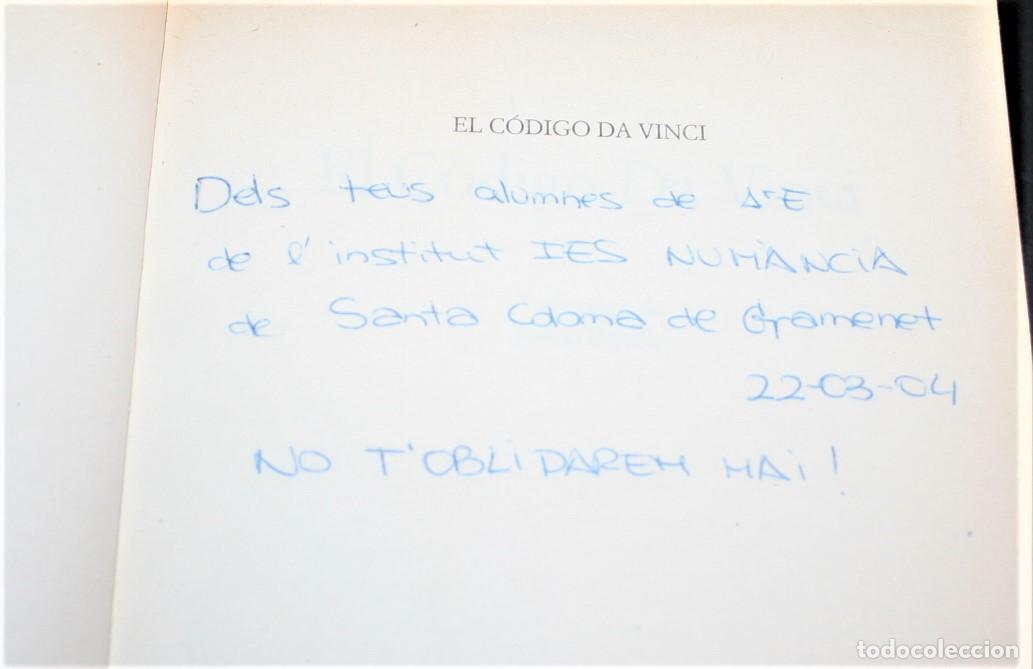 EL CÓDIGO DA VINCI
Dels teus alumnes de 1rE
de l'institut IES NUMÀNCIA
de Santa Coloma de Gramenet
22-03-04
NO T'OBLIDAREM MAI!
todocoleccion